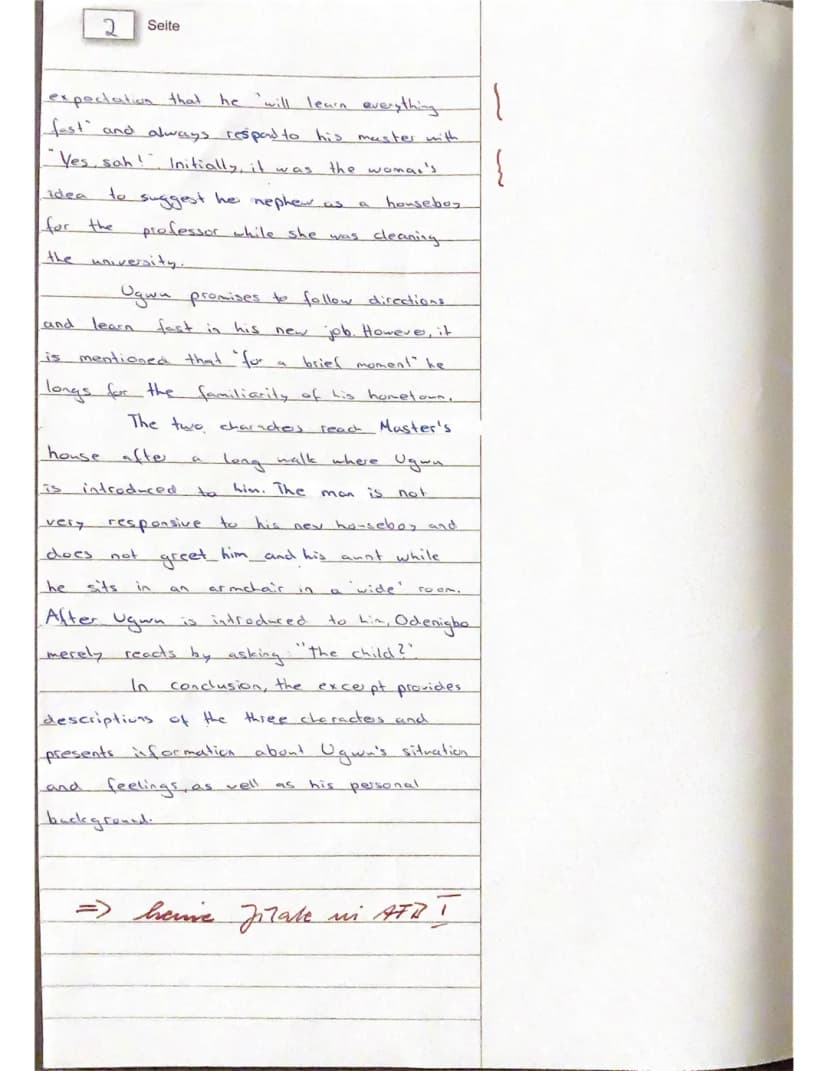 2 Seite
expectation that he "will learn everything
fast" and always respond to his master with
"Yes, sah!". Initially, it was the woman's
idea to suggest her nephew as a houseboy
for the professor while she was cleaning
the university.
Ugwu promises to follow directions
and learn fast in his new job. However, it
is mentioned that "for a brief moment" he
longs for the familiarity of his hometown.
The two characters reach Master's
house after a long walk where Ugwu
is introduced to him. The man is not
very responsive to his new houseboy and
does not greet him and his aunt while
he sits in an armchair in a 'wide' room.
After Ugwu is introduced to him, Odenigbo
merely reacts by asking "the child?".
In conclusion, the excerpt provides
descriptions of the three characters and
presents information about Ugwu's situation
and feelings, as well as his personal
background.
=> keine Zitate in AFB I